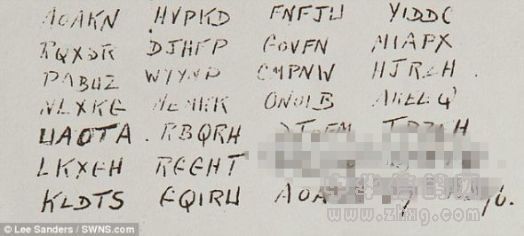 AOAKN HVPKD FNFJU YIDDC
RQXSR DJHFP GOVFN MIAPX
PABUZ WYYNP CMPNW HJRZH
NLXKG MEMKK ONOIB AKEEQ
UAOTA RBQRH DJOFM TPZEH
LKXGH RGGHT
KLDTS FQIRU
© Lee Sanders / SWNS.com
www.zhxg.com